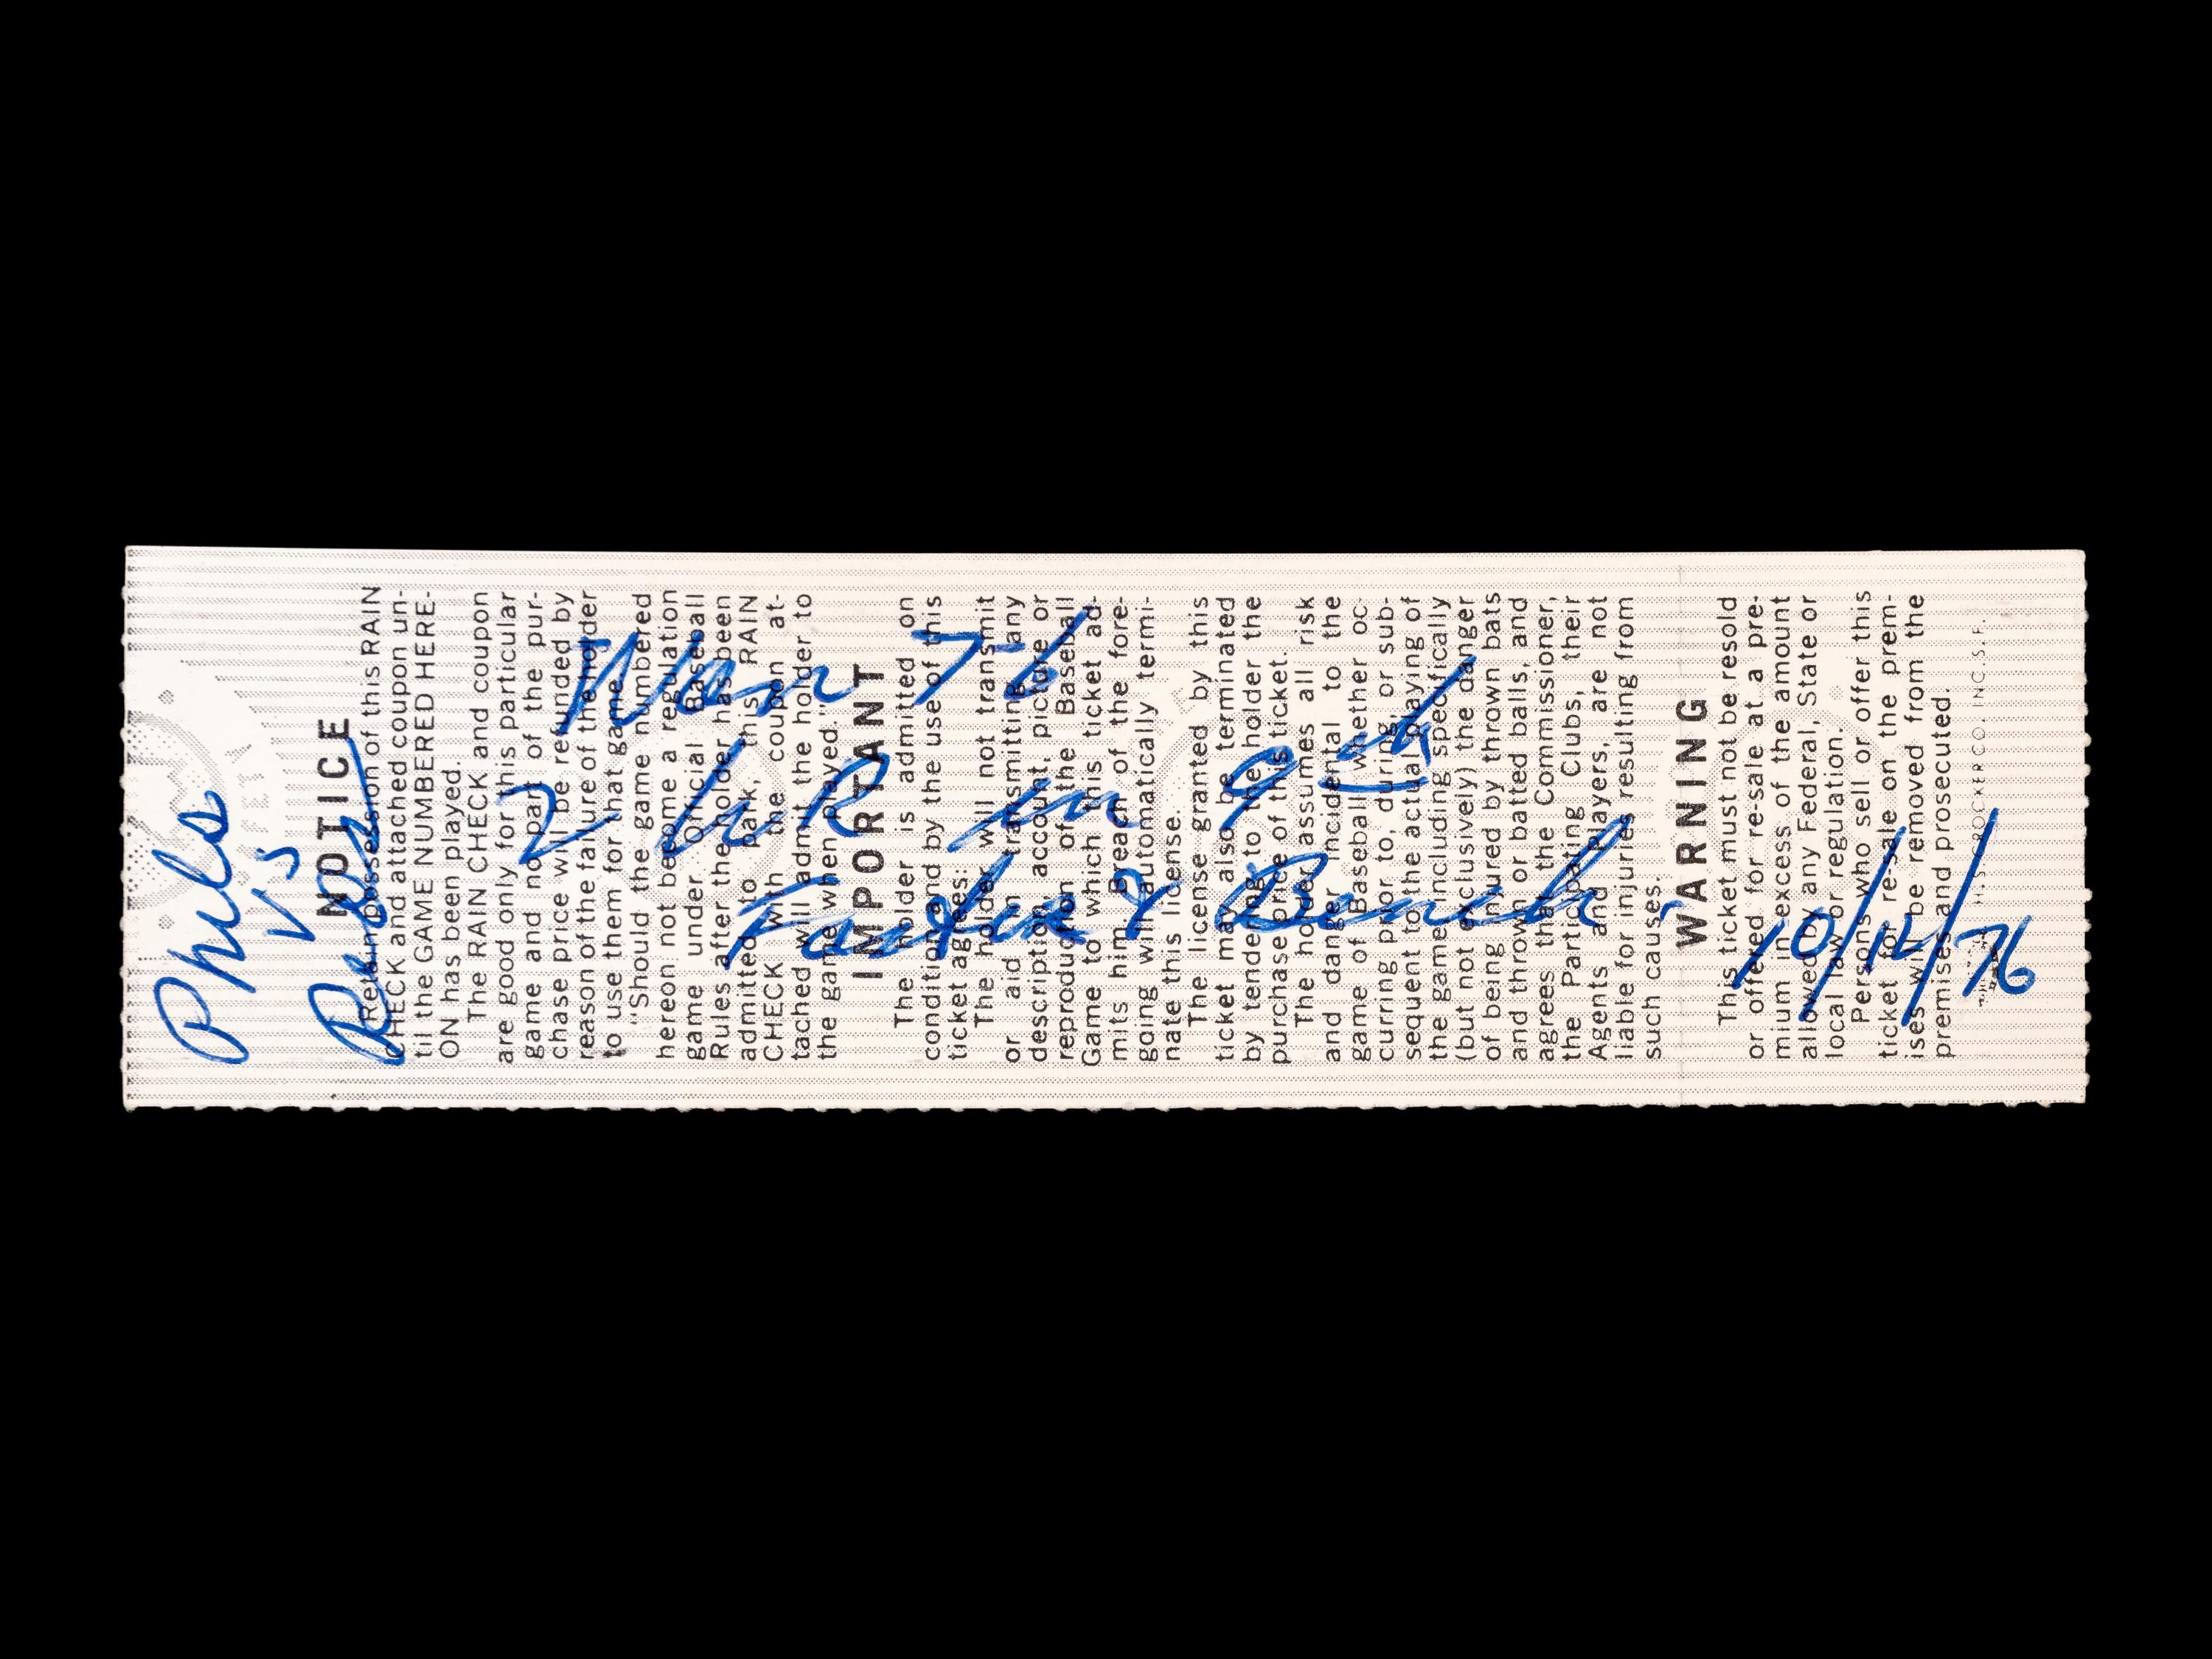 Phils
vs
Reds
Won 7-6
2 HR in 9th
Foster & Bench
10/14/76
NOTICE
Retain possession of this RAIN
CHECK and attached coupon un-
til the GAME NUMBERED HERE-
ON has been played.
The RAIN CHECK and coupon
are good only for this particular
game and no part of the pur-
chase price will be refunded by
reason of the failure of the holder
to use them for that game.
"Should the game numbered
hereon not become a regulation
game under Official Baseball
Rules after the holder has been
admitted to park, this RAIN
CHECK with the coupon at-
tached will admit the holder to
the game when played."
IMPORTANT
The holder is admitted on
condition and by the use of this
ticket agrees:
The holder will not transmit
or aid in transmitting any
description, account, picture or
reproduction of the Baseball
Game to which this ticket ad-
mits him. Breach of the fore-
going will automatically termi-
nate this license.
The license granted by this
ticket may also be terminated
by tendering to the holder the
purchase price of this ticket.
The holder assumes all risk
and danger incidental to the
game of Baseball whether oc-
curring prior to, during, or sub-
sequent to the actual playing of
the game including specifically
(but not exclusively) the danger
of being injured by thrown bats
and thrown or batted balls, and
agrees that the Commissioner,
the Participating Clubs, their
Agents and Players, are not
liable for injuries resulting from
such causes.
WARNING
This ticket must not be resold
or offered for re-sale at a pre-
mium in excess of the amount
allowed by any Federal, State or
local law or regulation.
Persons who sell or offer this
ticket for re-sale on the prem-
ises will be removed from the
premises and prosecuted.
CROCKER CO. INC. S.F.